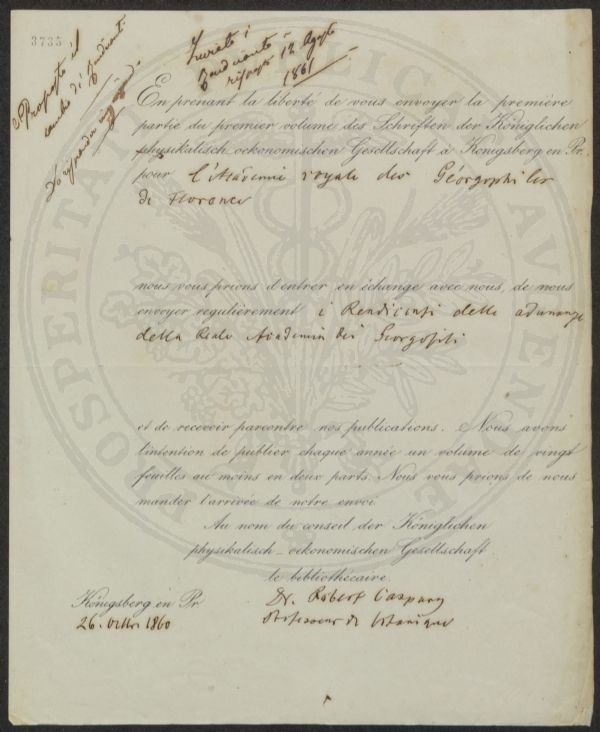 3735
Proposto il
cambio di
Inviati i
risposto 12 Agosto
1861
En prenant la liberté de vous envoyer la première
partie du premier volume des Schriften der Königlichen
physikalisch-oekonomischen Gesellschaft à Königsberg en Pr.
pour l'Academie royale des Géorgophiles
de Florence
nous vous prions d'entrer en échange avec nous, de nous
envoyer regulièrement i Rendiconti delle adunanze
della Reale Academia dei Georgofili
et de recevoir parcontre nos publications. Nous avons
l'intention de publier chaque année un volume de vingt
feuilles au moins en deux parts. Nous vous prions de nous
mander l'arrivée de notre envoi.
Au nom du conseil der Königlichen
physikalisch-oekonomischen Gesellschaft
le bibliothécaire
Königsberg en Pr.
26. 1860
Dr. Robert Caspary
Professeur de botanique
PROSPERITATI PUBLICAE AUGENDAE